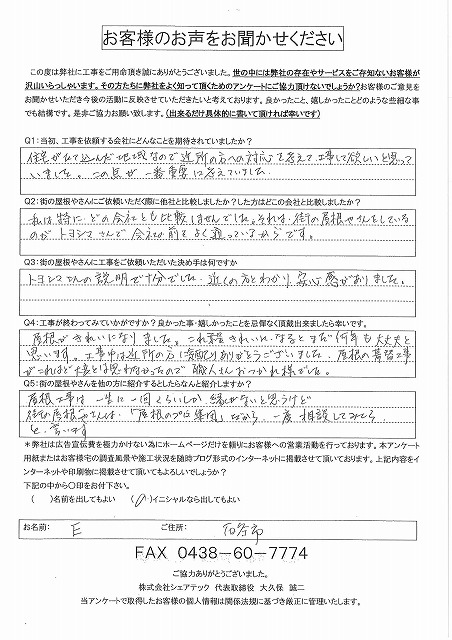 お客様のお声をお聞かせください
この度は弊社に工事をご用命頂き誠にありがとうございました。世の中には弊社の存在やサービスをご存知ないお客様が
沢山いらっしゃいます。その方たちに弊社をよく知って頂くためのアンケートにご協力頂けないでしょうか?お客様のご意見を
お聞かせいただき今後の活動に反映させていただきたいと考えております。良かったこと、嬉しかったことどのような些細な事
でも結構です。是非ご協力お願い致します。(出来るだけ具体的に書いて頂ければ幸いです)
Q1:当初、工事を依頼する会社にどんなことを期待されていましたか?
住宅がたて込んだ地域なので近所の方への対応も考えて工事して欲しいと思って
いました。この点が一番重要に考えていました。
Q2:街の屋根やさんにご依頼いただく際に他社と比較しましたか?した方はどこの会社と比較しましたか?
私は特に、どの会社とも比較しませんでした。それは、街の屋根やさんをしている
のがトヨシマさんで会社の前をよく通っているからです。
Q3:街の屋根やさんに工事をご依頼いただいた決め手は何ですか
トヨシマさんの説明で十分でした。近くの方とわかり、安心感がありました。
Q4:工事が終わってみていかがですか?良かった事・嬉しかったことを忌憚なく頂戴出来ましたら幸いです。
屋根がきれいになりました。これ程きれいになるとまだ何年も大丈夫と
思います。工事中は近所の方に気配りありがとうございました。屋根の葺替工事
がこれほど大変とは思わなかったので職人さんおつかれ様でした。
Q5:街の屋根やさんを他の方に紹介するとしたらなんと紹介しますか?
屋根工事は一生に一回くらいしか縁がないと思うけど
街の屋根やさんは、「屋根のプロ集団」だから、一度相談してみたら
と、言います
*弊社は広告宣伝費を極力かけない為にホームページだけを頼りにお客様への営業活動を行っております。本アンケート
用紙またはお客様宅の調査風景や施工状況を随時ブログ形式のインターネットに掲載させて頂いております。上記内容をイ
ンターネットや印刷物に掲載させて頂いてもよろしいでしょうか?
下記の中から〇印をお付下さい。
( )名前を出してもよい (〇)イニシャルなら出してもよい
お名前: E ご住所:
FAX 0438-60-7774
ご協力ありがとうございました。
株式会社シェアテック 代表取締役 大久保 誠二
当アンケートで取得したお客様の個人情報は関係法規に基づき厳正に管理いたします。